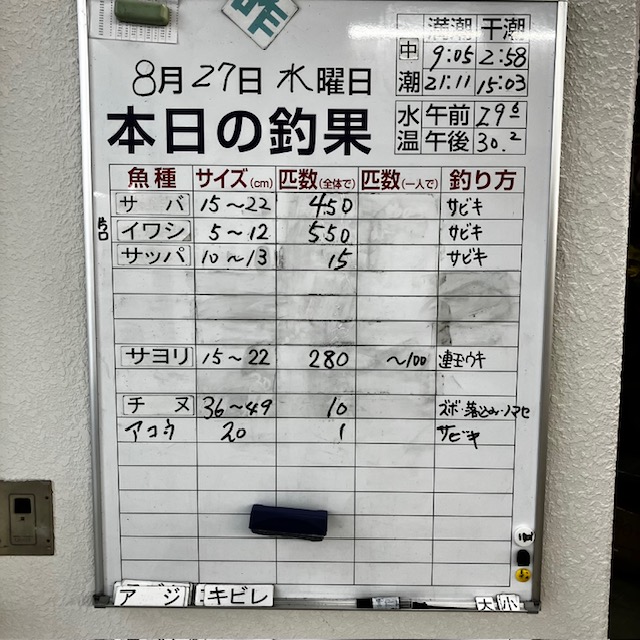 昨
8月27日 水曜日
本日の釣果
満潮 干潮
中潮 9:05 2:58
21:11 15:03
水温 午前 29.6
午後 30.2
魚種 サイズ(cm) 匹数(全体で) 匹数(一人で) 釣り方
サバ 15〜22 450 サビキ
片口 イワシ 5〜12 550 サビキ
サッパ 10〜13 15 サビキ
サヨリ 15〜22 280 〜100 連玉ウキ
チヌ 36〜49 10 ズボ・落込み・ノマセ
アコウ 20 1 サビキ
アジ キビレ 大 小